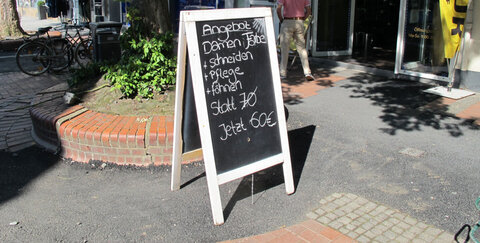 Angebot
Damen Farbe
+ schneiden
+ Pflege
+föhnen
Statt 70
Jetzt 60€